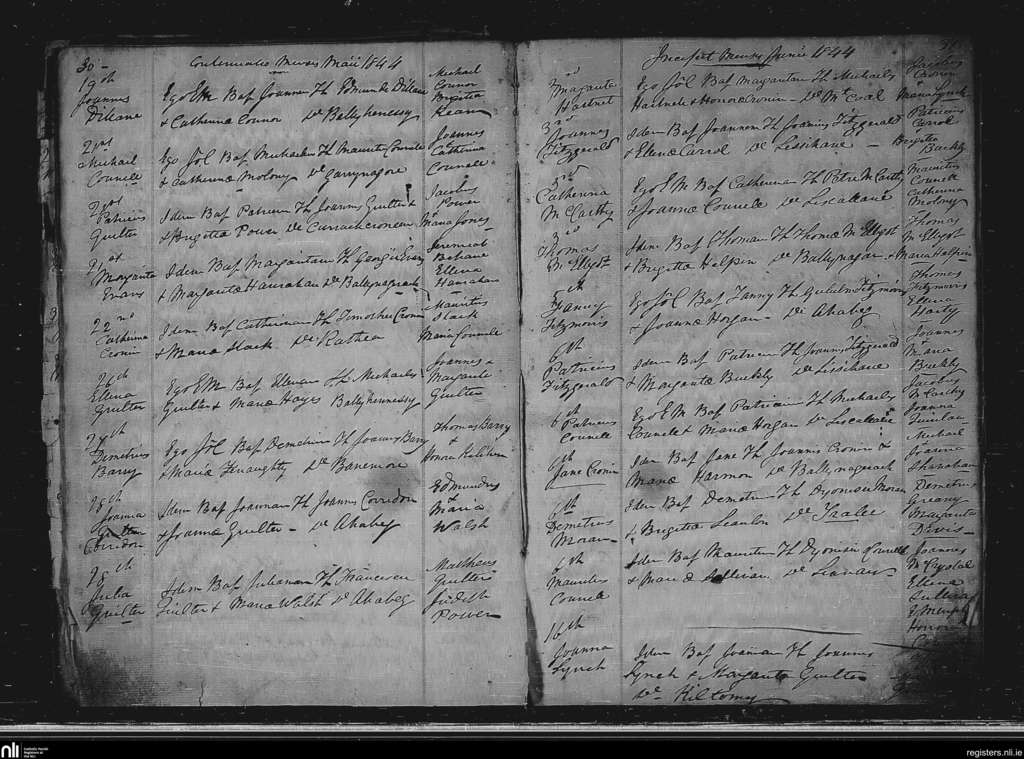 30
Continuatio Mensis Maii 1844
19th
Joannes
Dillane
Ego EM Bap Joannem Fh Edmundi Dillane
& Catherina Connor de Ballyhennessy
Michael
Connor
Brigitta
Kean
21st
Michael
Connell
Ego JoL Bap Michaelem Fh Mauritii Connell
& Catherinæ Molony de Garrynagore
Joannes
Catherina
Connell
21st
Patricius
Guilter
Idem Bap Patricium Fh Joannis Guilter &
& Brigitta Power de
Jacobus
Power
Maria Jones
21st
Margarita
Evans
Idem Bap Margaritam Fh Georgii Evans
& Margarita Hanrahan de Ballynageragh
Jeremiah
Behane
Ellena
Hanrahan
22nd
Catherina
Cronin
Idem Bap Catherinam Fh Timothei Cronin
& Maria Slack de Rathea
Mauritius
Slack
Maria Connell
26th
Ellena
Guilter
Ego EM Bap Ellenam Fh Michaelis
Guilter & Mariæ Hayes Ballyhennessy
Joannes &
Margarita
Guilter
27th
Demetrius
Barry
Ego JoL Bap Demetrium Fh Joannis Barry
& Maria Henaughty de Banemore
Thomas Barry
&
Honora
28th
Joanna
Corridon
Idem Bap Joannam Fh Joannis Corridon
& Joanna Guilter de Ahabeg
Edmundus
&
Maria
Walsh
28th
Julia
Guilter
Idem Bap Julianam Fh Francisci
Guilter & Maria Walsh de Ahabeg
Mathias
Guilter
Judith
Power
31
Incipit Mensis Junii 1844
2nd
Margarita
Hartnet
Ego JoL Bap Margaritam Fh Michaelis
Hartnet & Honora Cronin de Mt Coal
Jacobus
Cronin
Maria Lynch
3rd
Joannes
Fitzgerald
Idem Bap Joannem Fh Joannis Fitzgerald
& Ellena Carrol de Lissihane
Patricius
Carrol
Brigitta
Buckly
3rd
Catherina
McCarthy
Ego EM Bap Catherinam Fh Petri McCarthy
& Joanna Connell de Liscullane
Mauritius
Connell
Catherina
Molony
3rd
Thomas
McElligot
Idem Bap Thomam Fh Thomæ McElligot
& Brigitta Helpin de Ballynagar
Thomas
McElligot
& Maria Helpin
5th
Fanny
Fitzmorris
Ego JoL Bap Fanny Fh Gulielmi Fitzmorris
& Joanna Horgan de Ahabeg
Thomas
Fitzmorris
Ellena
Harty
6th
Patricius
Fitzgerald
Idem Bap Patricium Fh Joannis Fitzgerald
& Margarita Buckly de Lissihane
Joannes
&
Maria
Buckly
6th
Patricius
Connell
Ego EM Bap Patricium Fh Michaelis
Connell & Mariæ Horgan de
Jacobus
McCarthy
Joanna
6th
Jane Cronin
Idem Bap Jane Fh Joannis Cronin &
Mariæ Harmon de Ballynageragh
Michael
Joanna
Shanahan
6th
Demetrius
Moran
Idem Bap Demetrium Fh Dyonisii Moran
& Brigitta Scanlon de Tralee
Demetrius
Greany
Margarita
Divis
6th
Mauritius
Connell
Idem Bap Mauritium Fh Dyonisii Connell
& Maria Sullivan de
Joannes
Ellena
Honora
16th
Joanna
Lynch
Idem Bap Joannam Fh Joannis
Lynch & Margarita Guilter
de Kiltomy
nli
registers.nli.ie